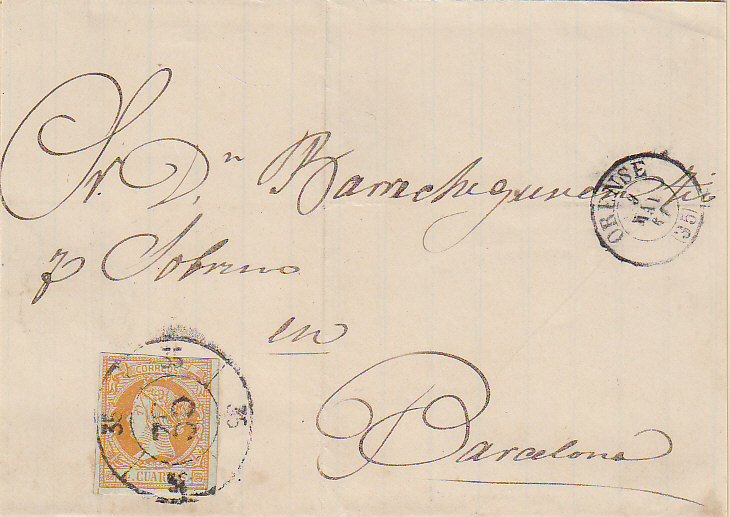 Sr. Dn. Barrachegurena Tio
y Sobrino
en
Barcelona
ORENSE
MAI
(35)
CORREOS
CUAR
35
35
35